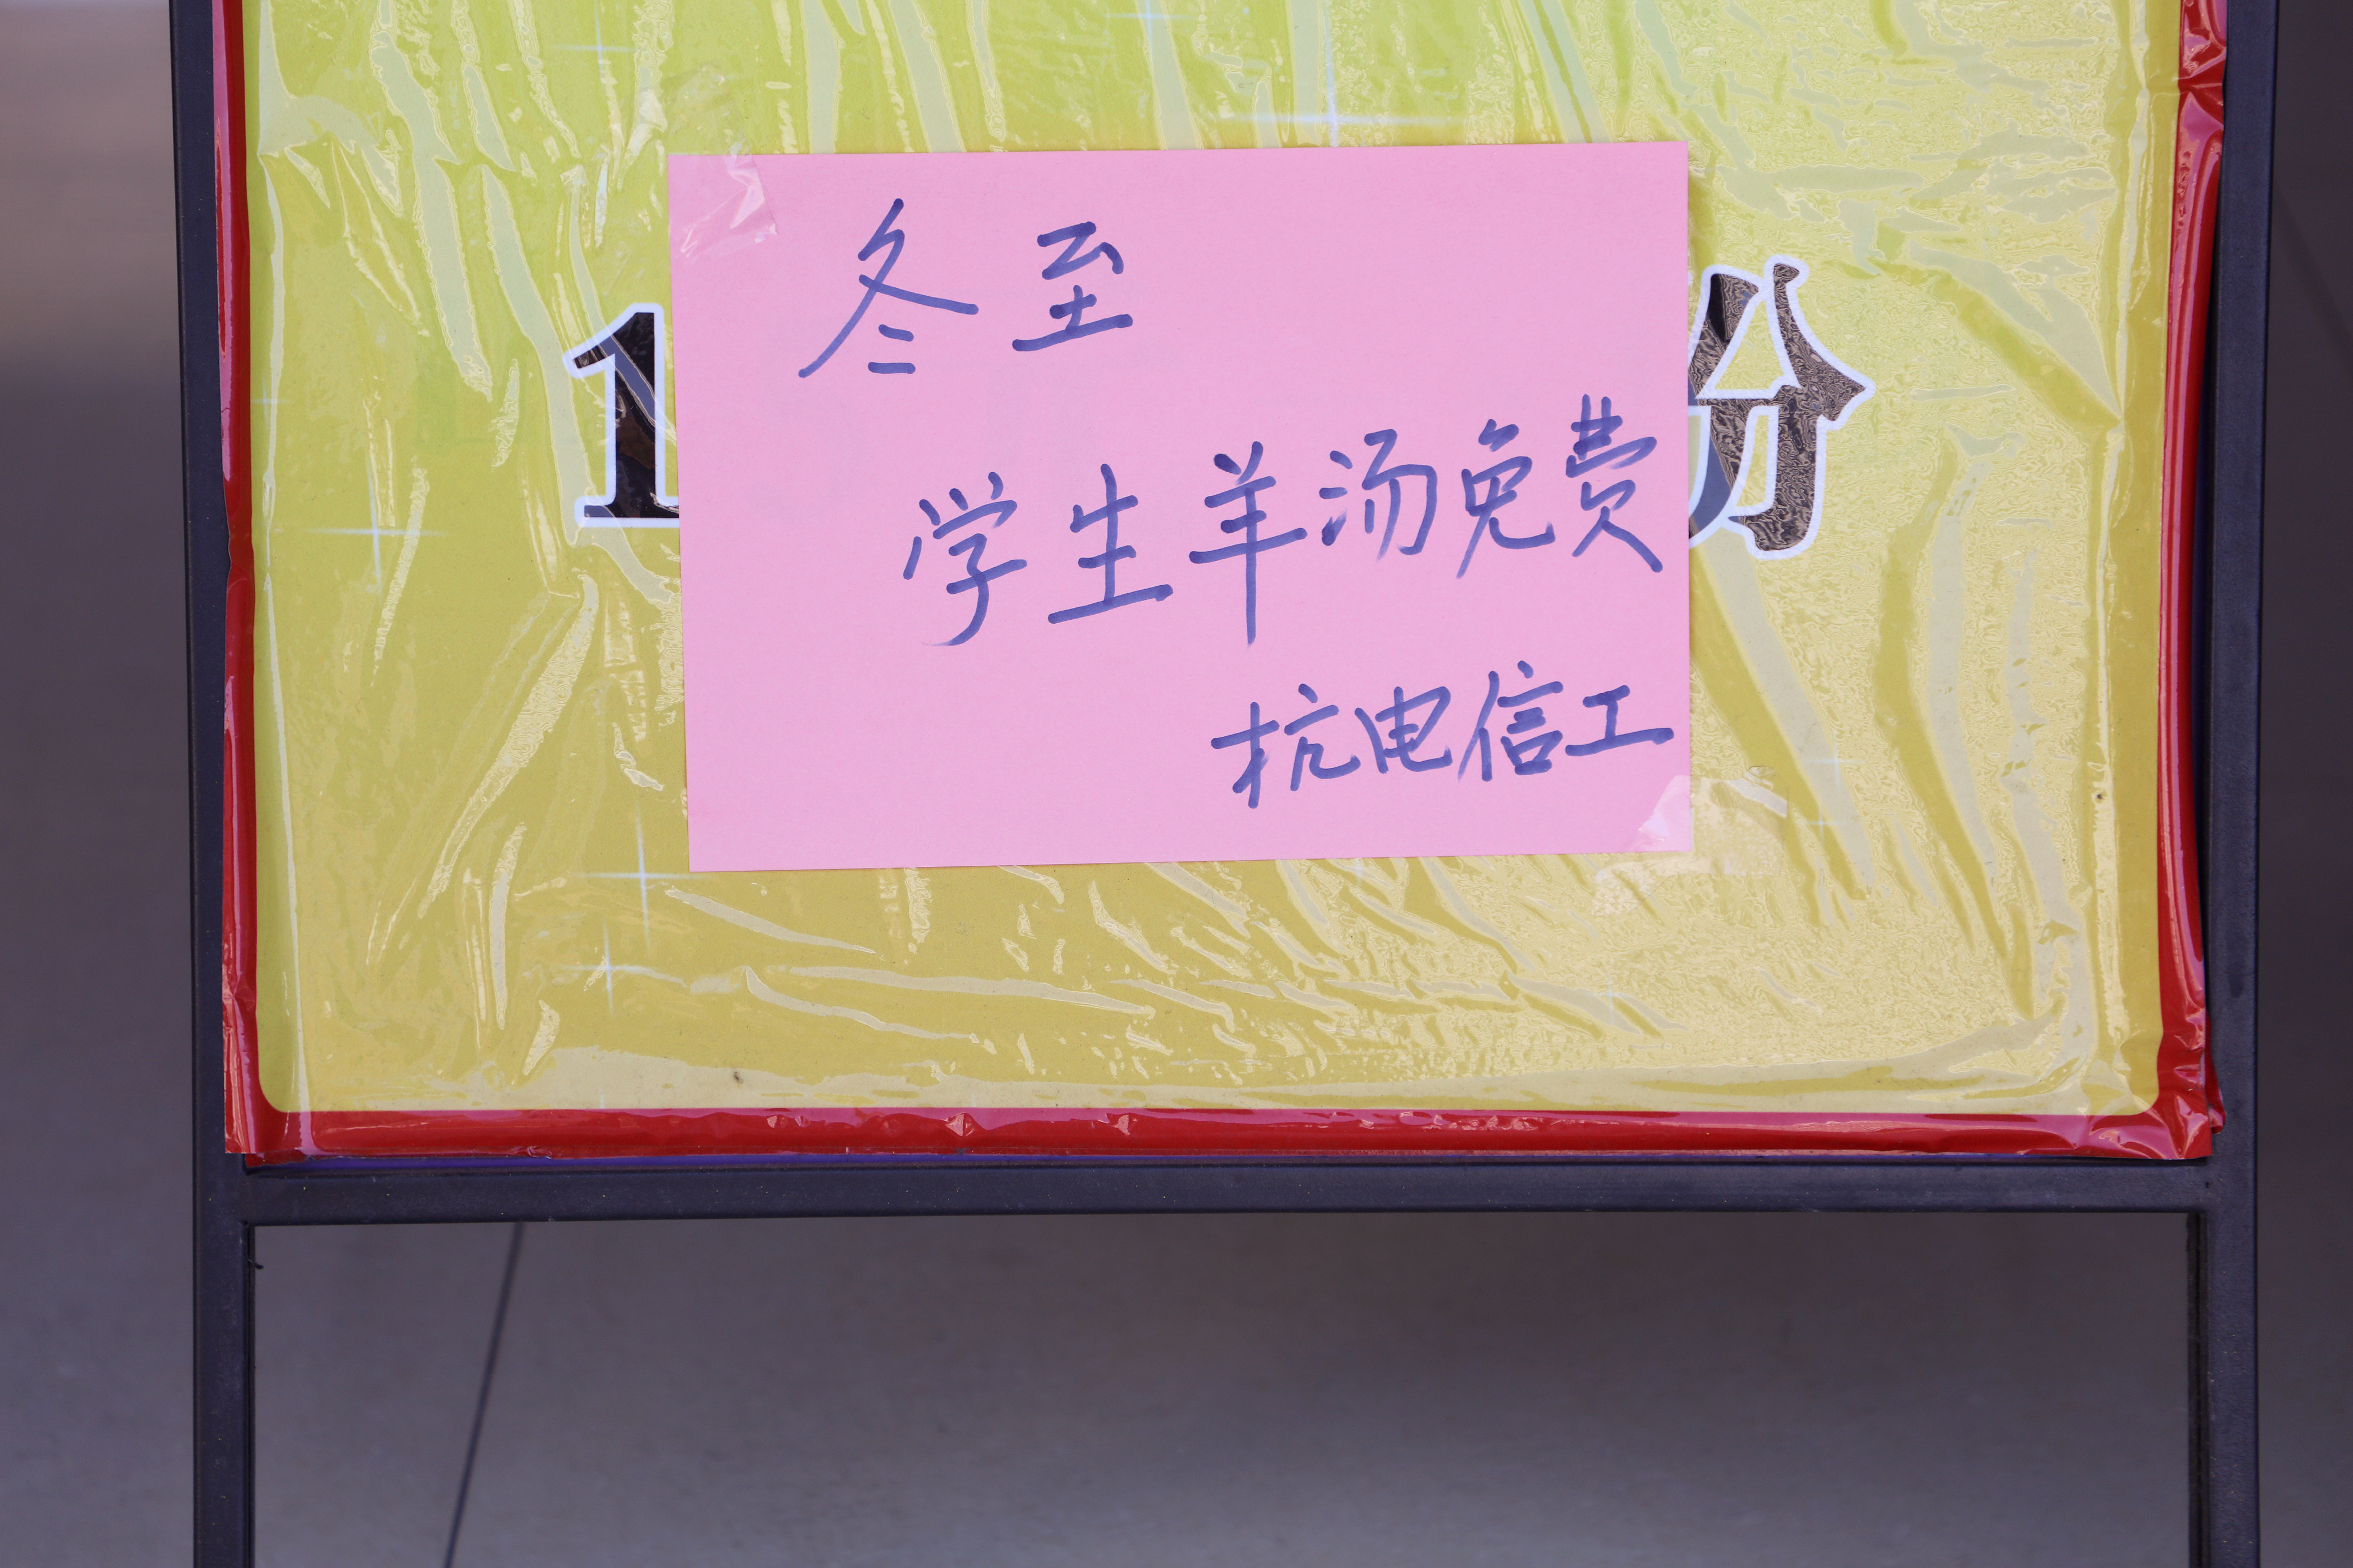 冬至
1 份
学生羊汤免费
杭电信工